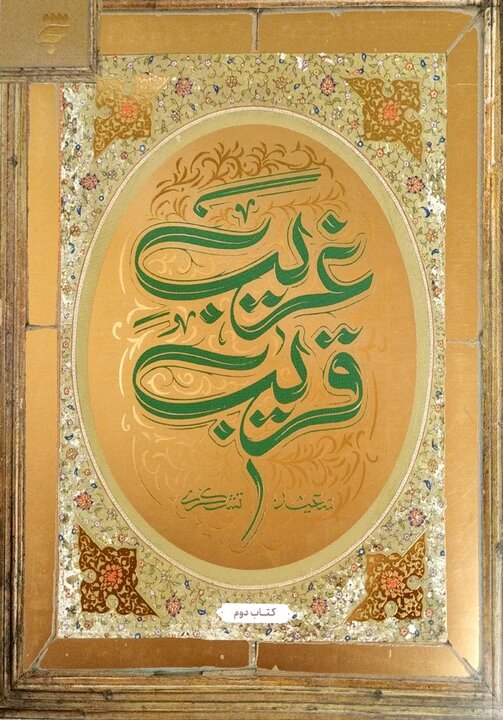 غریب
قریب
سعید تشکری
کتاب دوم